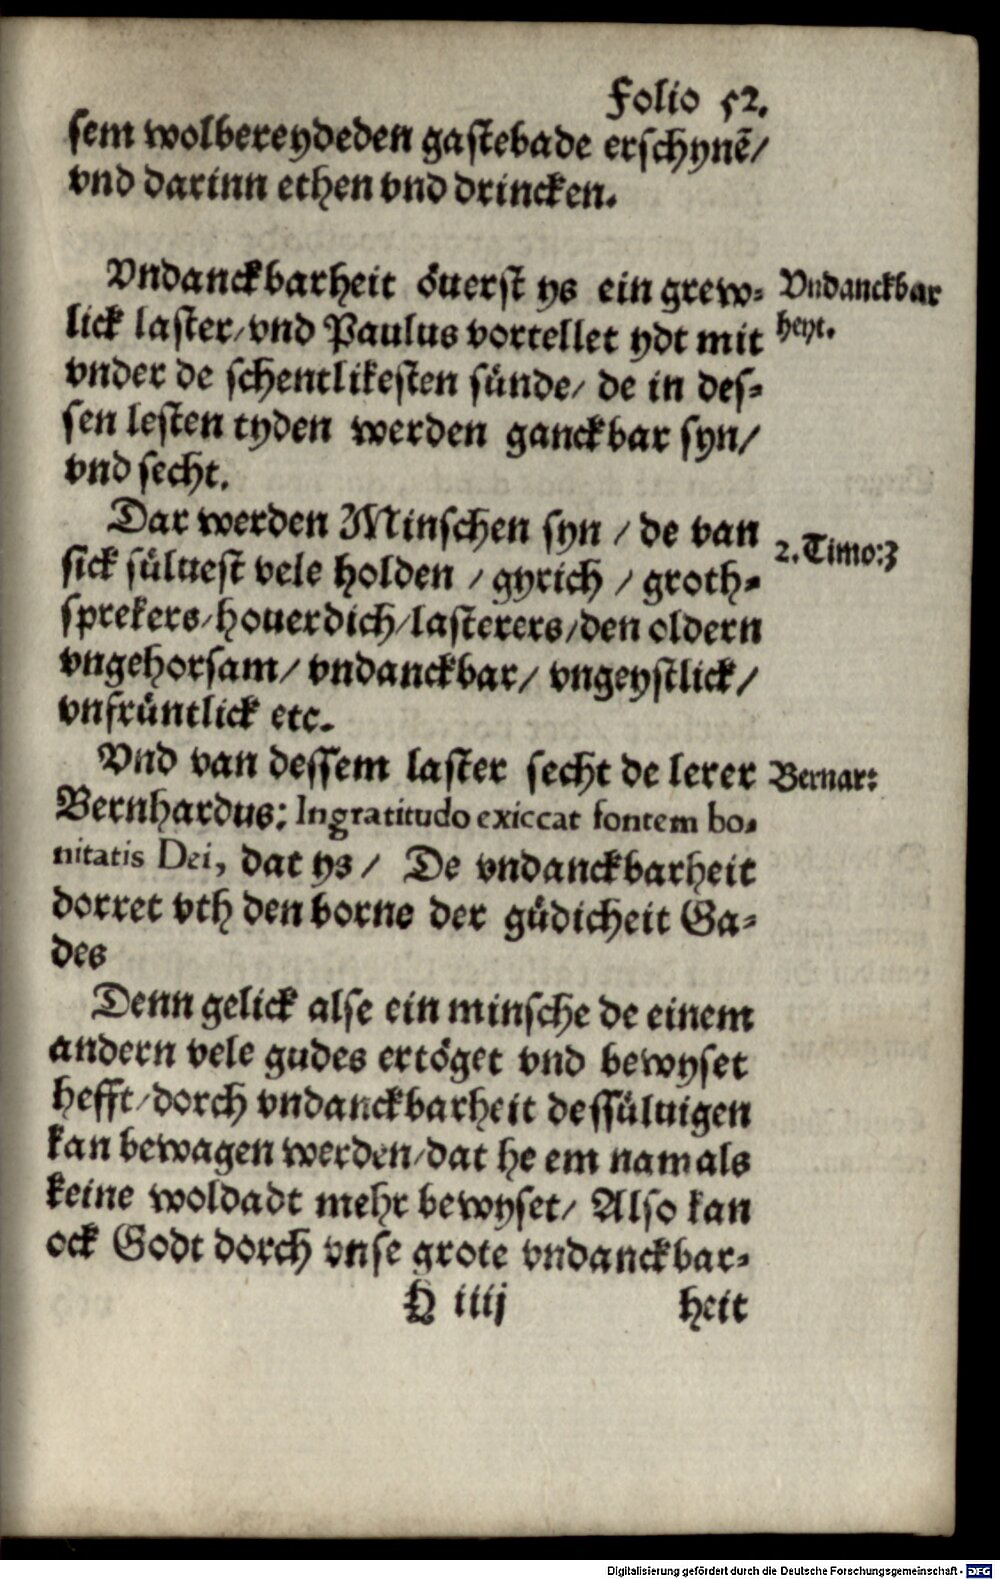 Folio 52.
sem wolbereydeden gastebade erschynē/
vnd darinn ethen vnd drincken.
Vndanckbarheit öuerst ys ein grew-
lick laster/vnd Paulus vortellet ydt mit
vnder de schentlikesten sünde/ de in des-
sen lesten tyden werden ganckbar syn/
vnd secht.
Vndanckbar
heyt.
Dar werden Minschen syn / de van
sick süluest vele holden / gyrich / groth-
sprekers/houerdich/lasterers/den oldern
vngehorsam/ vndanckbar/ vngeystlick/
vnfrüntlick etc.
2. Timo:3
Vnd van dessem laster secht de lerer
Bernhardus: Ingratitudo exiccat fontem bo-
nitatis Dei, dat ys / De vndanckbarheit
dorret vth den borne der güdicheit Ga-
des
Bernar:
Denn gelick alse ein minsche de einem
andern vele gudes ertöget vnd bewyset
hefft/dorch vndanckbarheit dessüluigen
kan bewagen werden/dat he em namals
keine woldadt mehr bewyset/ Also kan
ock Godt dorch vnse grote vndanckbar-
H iiij heit
Digitalisierung gefördert durch die Deutsche Forschungsgemeinschaft - DFG